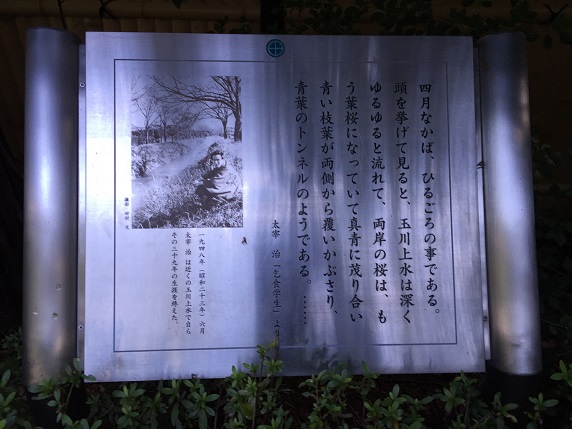 四月なかば、ひるごろの事である。
頭を挙げて見ると、玉川上水は深く
ゆるゆると流れて、両岸の桜は、も
う葉桜になっていて真青に茂り合い
青い枝葉が両側から覆いかぶさり、
青葉のトンネルのようである。……
太宰 治「乞食学生」より
一九四八年(昭和二十三年)六月
太宰 治は近くの玉川上水で自ら
その三十九年の生涯を終えた。